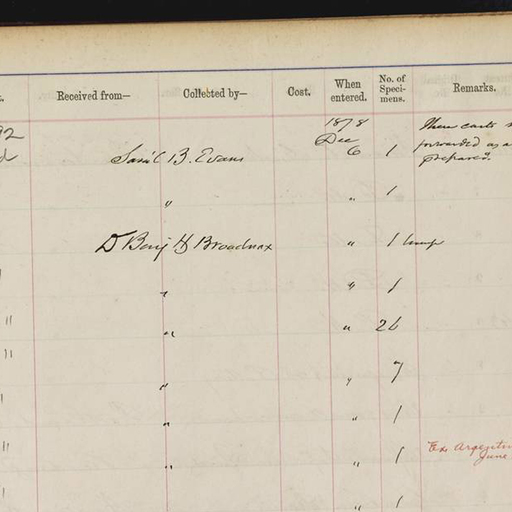 Received from— Collected by— Cost. When entered. No. of Speci-mens. Remarks.
92 1878
Dec
Sam'l B. Evans 6 1 forwarded as
prepared.
" " 1
Dr Benj H Broadnax " 1 lump
" " 1
" " " 26
" " " 7
" " 1
" " " 1 Ex. Argentin
June
" 1